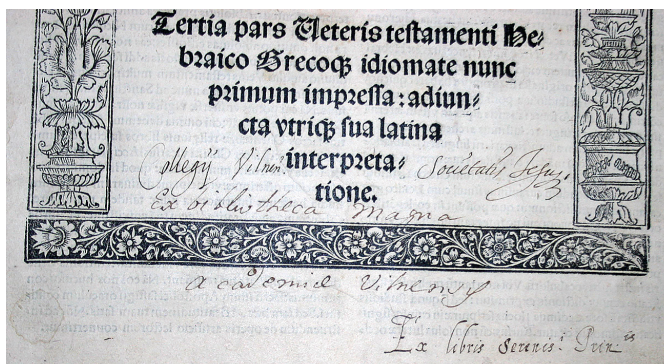 Tertia pars Ueteris testamenti He⸗
braico Grecoq̃ idiomate nunc
primum impressa: adiun⸗
cta vtriq̃ sua latina
Collegij Vilnen: interpreta⸗ Societatis Jesu
tione.
Ex bibliotheca Magna
Academiæ Vilnensis
Ex libris Sereniss: Prin is